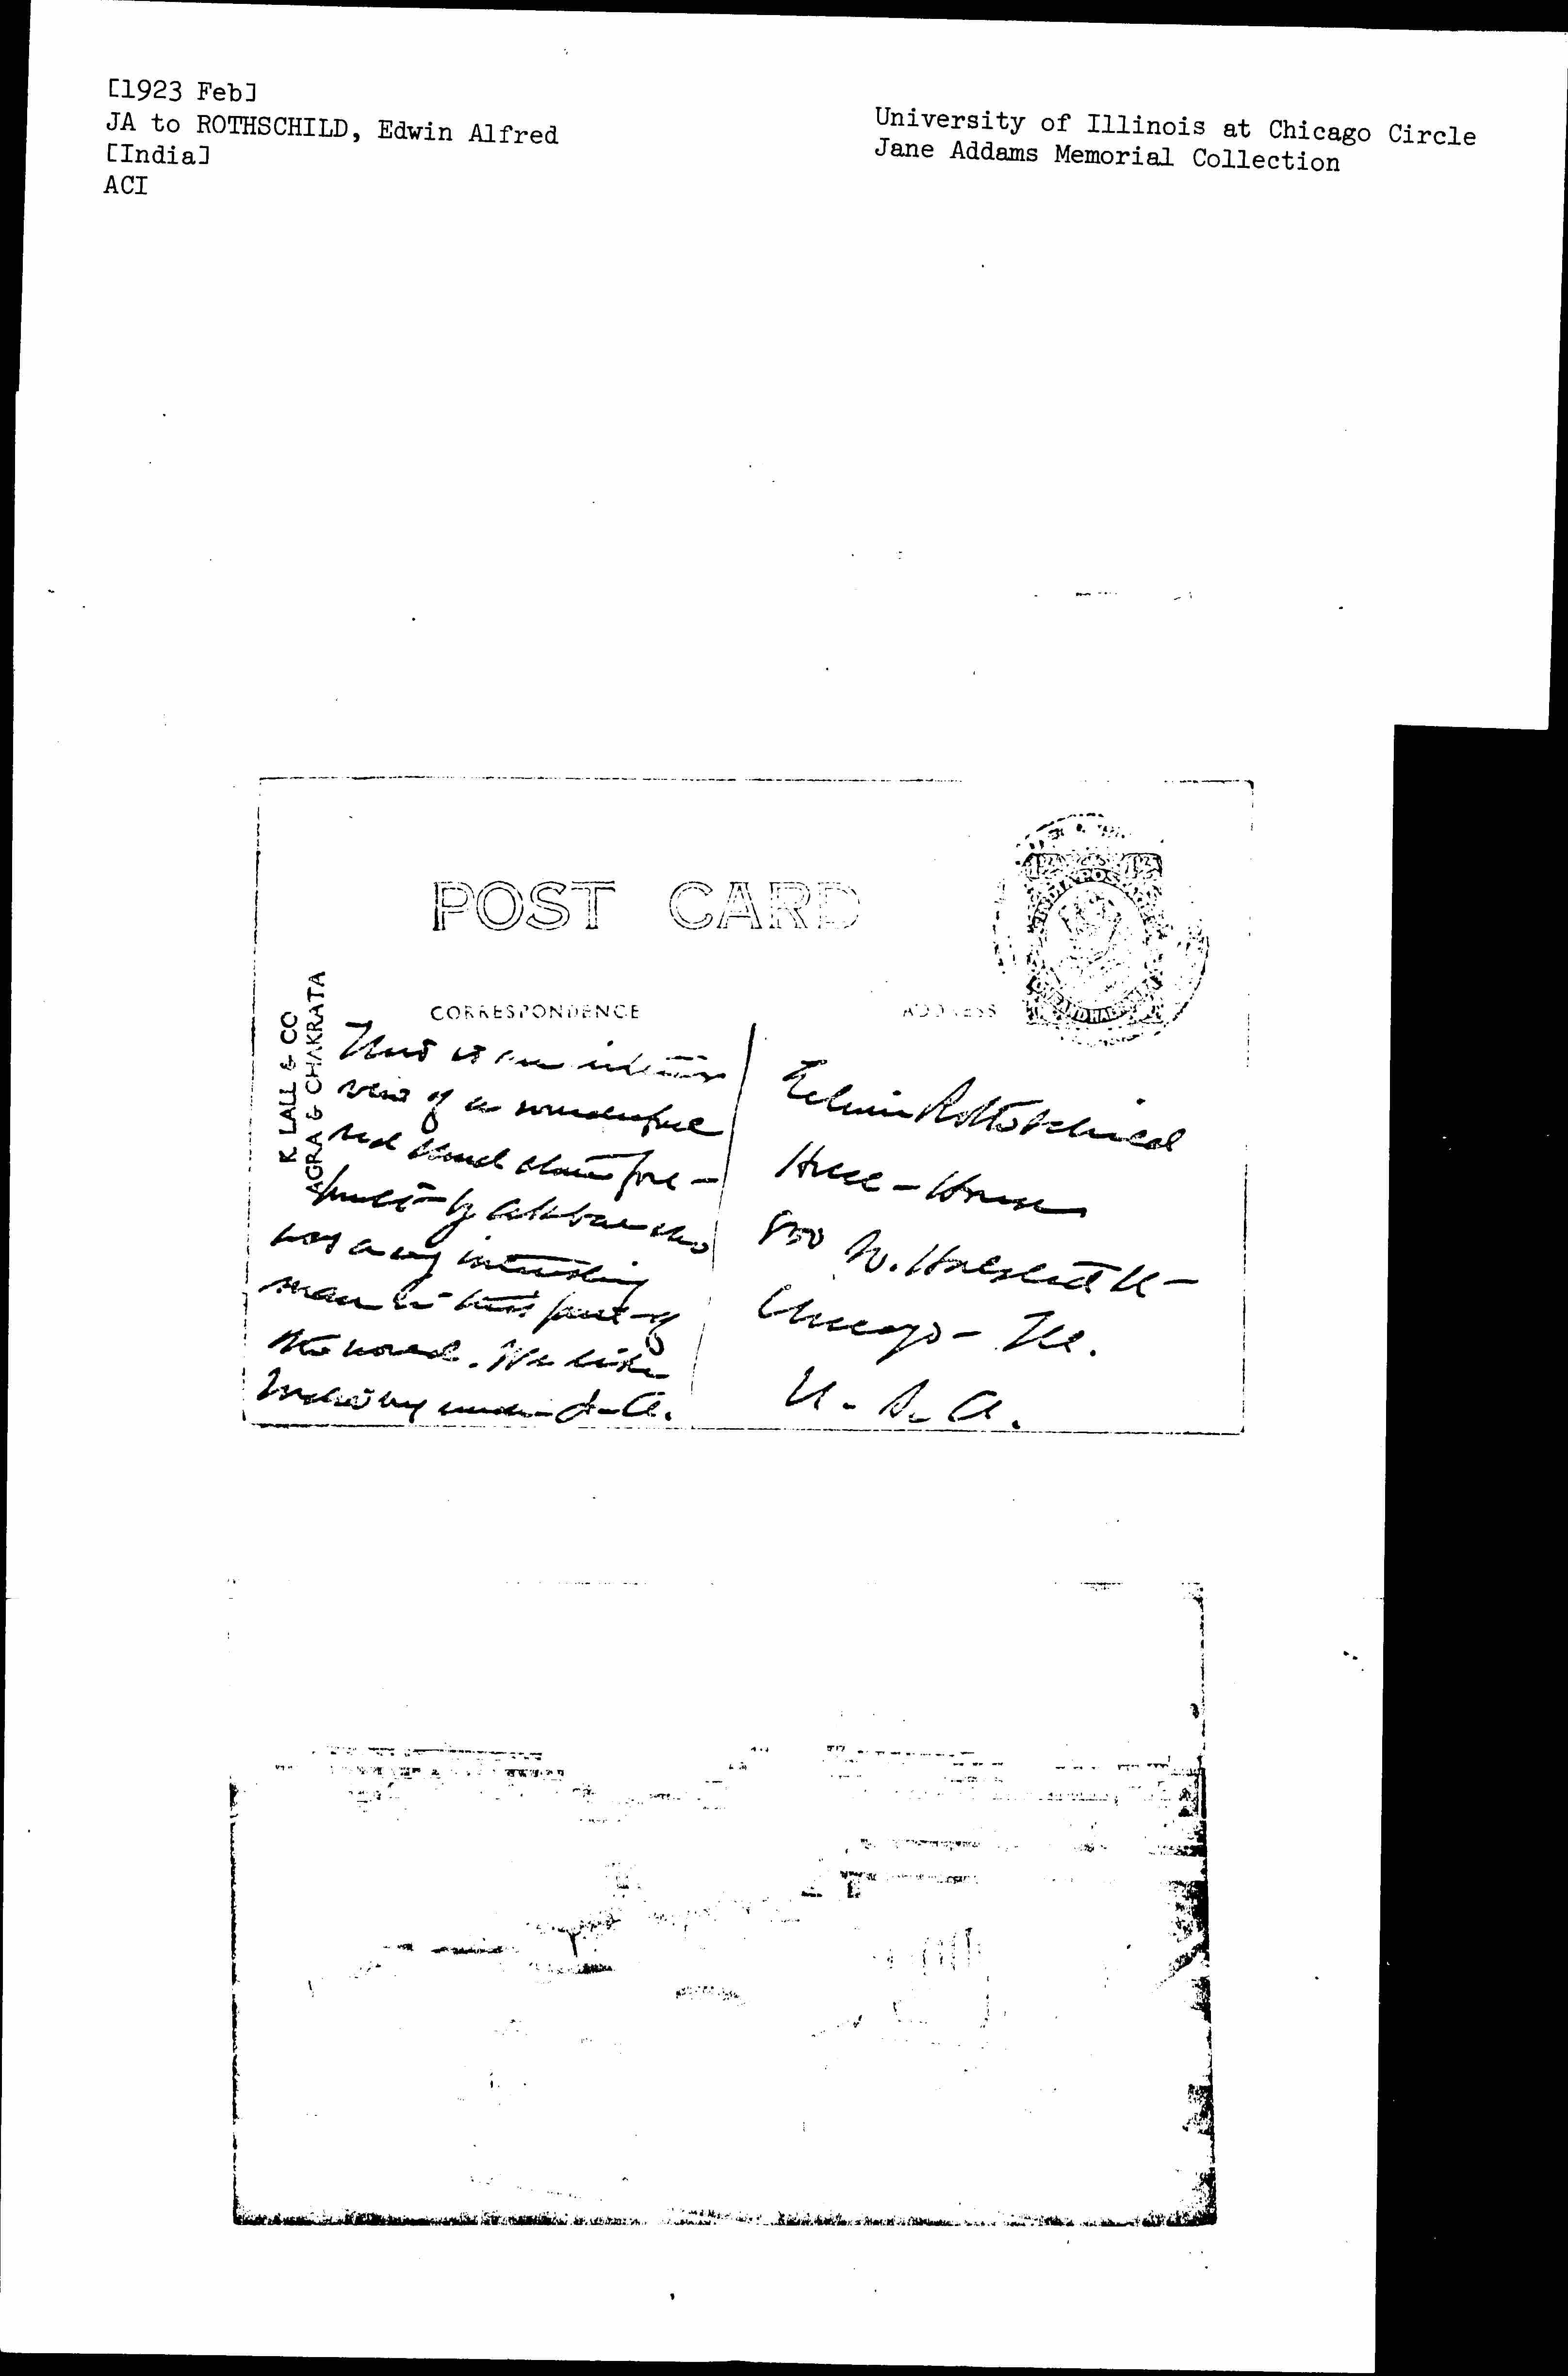 [1923 Feb]
JA to ROTHSCHILD, Edwin Alfred
[India]
ACI
University of Illinois at Chicago Circle
Jane Addams Memorial Collection
POST CARD
K LALL & CO
AGRA & CHAKRATA
CORRESPONDENCE
ADDRESS
INDIA POSTAGE
This is an interior
view of a wonderful
red sand stone fort -
built by Akbar who
was a very interesting
man in this part of
the world. We like
India very much - J-A.
Edwin Rothschild
Hull-House
800 W. Halsted St-
Chicago - Ill.
U-S-A.